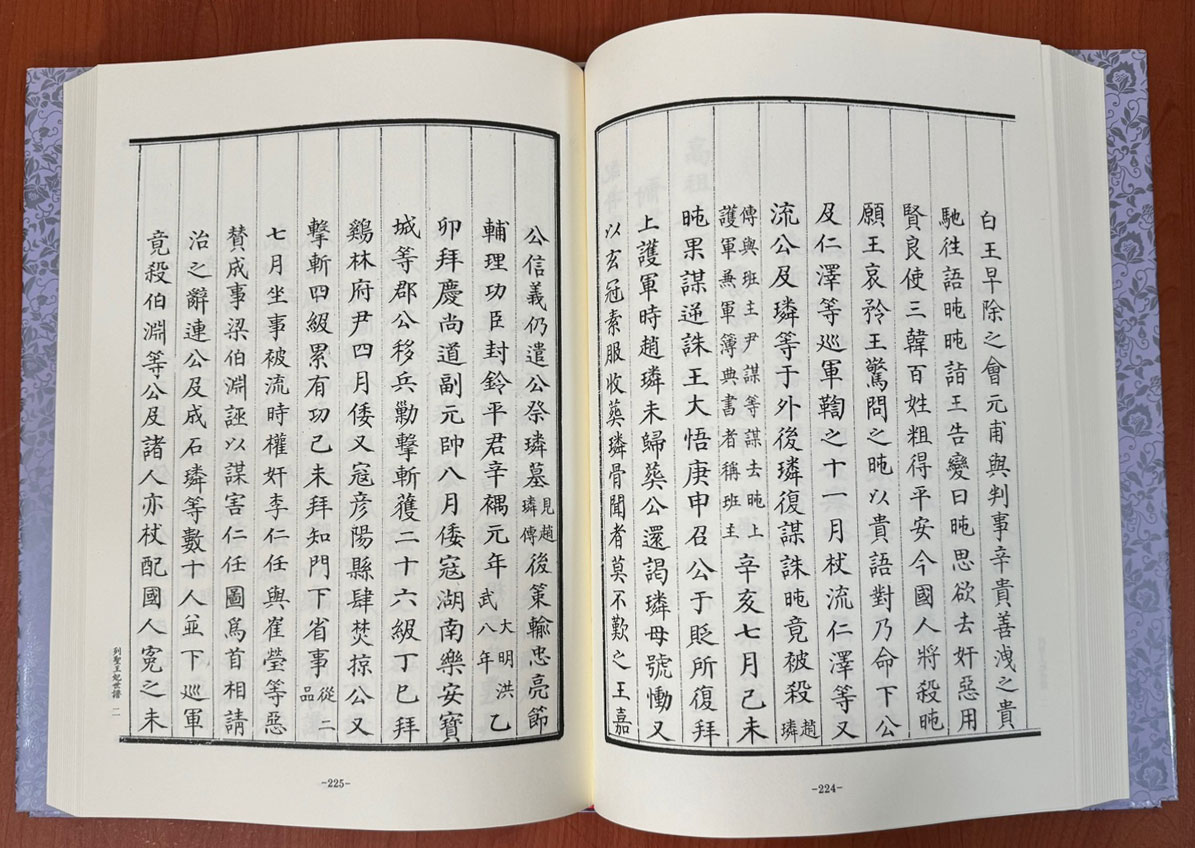 白王早除之會元甫與判事辛貴善洩之貴
馳徃語旽旽詣王告變曰旽思欲去奸惡用
賢良使三韓百姓粗得平安今國人將殺旽
願王哀矜王驚問之旽以貴語對乃命下公
及仁澤等巡軍鞫之十一月杖流仁澤等又
流公及璘等于外後璘復謀誅旽竟被殺趙璘
傳與班主尹謀等謀去旽上護軍兼軍簿典書者稱班主辛亥七月己未
旽果謀逆誅王大悟庚申召公于貶所復拜
上護軍時趙璘未歸葬公還謁璘母號慟又
以玄冠素服收葬璘骨聞者莫不歎之王嘉
-224-
公信義仍遣公祭璘墓見趙璘傳後策輸忠亮節
輔理功臣封鈴平君辛禑元年大明洪武八年乙
卯拜慶尚道副元帥八月倭寇湖南樂安寶
城等郡公移兵勦擊斬獲二十六級丁巳拜
鷄林府尹四月倭又寇彦陽縣肆焚掠公又
擊斬四級累有功己未拜知門下省事從二品
七月坐事被流時權奸李仁任與崔瑩等惡
賛成事梁伯淵誣以謀害仁任圖爲首相請
治之辭連公及成石璘等數十人並下巡軍
竟殺伯淵等公及諸人亦杖配國人寃之未
列聖王妃世譜 二
-225-